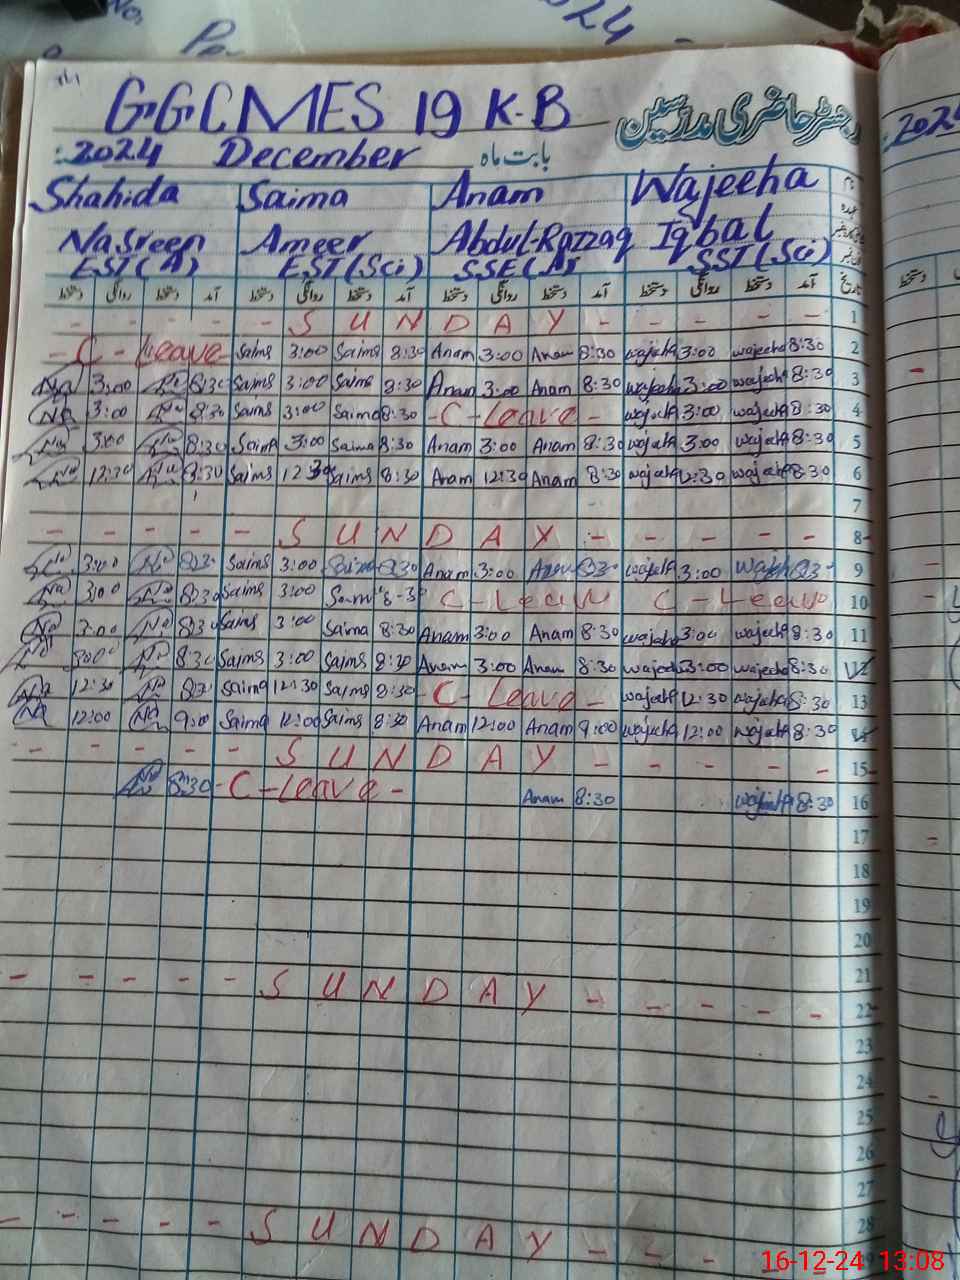 2024
GGCMES 19 K.B رجسٹر حاضری مدرسین
:2024 December بابت ماہ
Shahida Saima Anam Wajeeha
Nasreen Ameer Abdul-Razzaq Iqbal
EST(A) EST(Sci) SSE(A) SST(Sci)
دستخط روانگی دستخط آمد دستخط روانگی دستخط آمد دستخط روانگی دستخط آمد دستخط روانگی دستخط آمد تاریخ
- - - - - S U N D A Y - - - - - 1
- C - Leave Saima 3:00 Saima 8:30 Anam 3:00 Anam 8:30 wajeeha 3:00 wajeeha 8:30 2
3:00 8:30 Saima 3:00 Saima 8:30 Anam 3:00 Anam 8:30 wajeeha 3:00 wajeeha 8:30 3
3:00 8:30 Saima 3:00 Saima 8:30 - C - Leave - wajeeha 3:00 wajeeha 8:30 4
3:00 8:30 Saima 3:00 Saima 8:30 Anam 3:00 Anam 8:30 wajeeha 3:00 wajeeha 8:30 5
12:30 8:30 Saima 12:30 Saima 8:30 Anam 12:30 Anam 8:30 wajeeha 12:30 wajeeha 8:30 6
7
- - - - - S U N D A Y - - - - - 8
3:00 8:30 Saima 3:00 Saima 8:30 Anam 3:00 Anam 8:30 wajeeha 3:00 wajeeha 8:30 9
3:00 8:30 Saima 3:00 Saima 8:30 C - Leave C - Leave 10
3:00 8:30 Saima 3:00 Saima 8:30 Anam 3:00 Anam 8:30 wajeeha 3:00 wajeeha 8:30 11
3:00 8:30 Saima 3:00 Saima 8:30 Anam 3:00 Anam 8:30 wajeeha 3:00 wajeeha 8:30 12
12:30 8:30 Saima 12:30 Saima 8:30 - C - Leave - wajeeha 12:30 wajeeha 8:30 13
12:00 9:00 Saima 12:00 Saima 8:30 Anam 12:00 Anam 9:00 wajeeha 12:00 wajeeha 8:30 14
- - - - - S U N D A Y - - - - - 15
8:30 - C - Leave - Anam 8:30 wajeeha 8:30 16
17
18
19
20
21
- - - - - S U N D A Y - - - - - 22
23
24
25
26
27
28
- - - - - S U N D A Y - - -
16-12-24 13:08